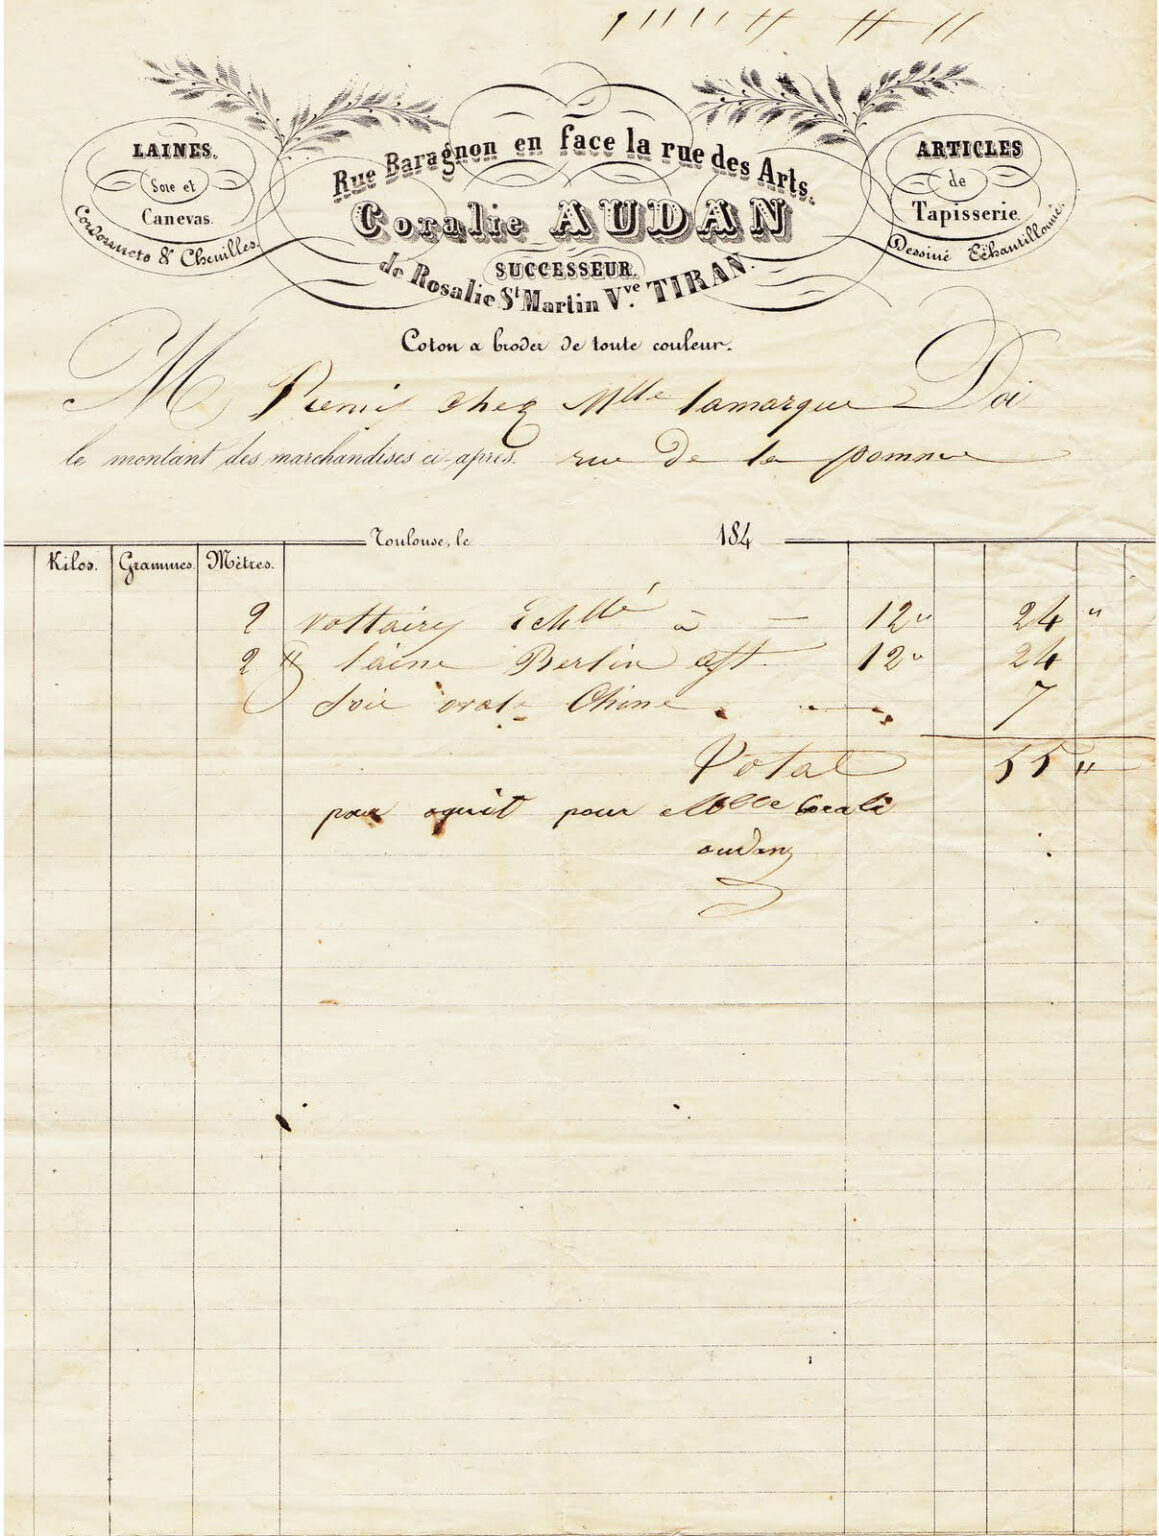 LAINES.
Soie et
Canevas.
Cordonnets & Chenilles.
Rue Baragnon en face la rue des Arts.
Coralie AUDAN
SUCCESSEUR.
de Rosalie St Martin Vve. TIRAN.
ARTICLES
de
Tapisserie.
Dessiné Echantillonné.
Coton a broder de toute couleur.
M Remis chez Mlle lamarque Doi
le montant des marchandises ci-après. rue de la pomme
Toulouse, le 184
Kilos. Grammes. Mètres.
2 voltaires Echllé à — 12 " 24 "
2 " laine Berlin asst. 12 " 24
Soie ovale Chine 7
Total 55 "
pour aquit pour Mlle Corali
audan